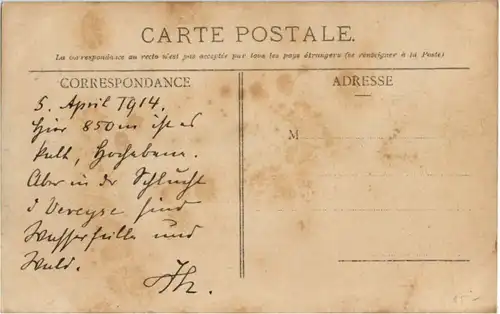 CARTE POSTALE.
La correspondance au recto n'est pas acceptée par tous les pays étrangers (se renseigner à la Poste)
CORRESPONDANCE
5. April 1914.
Hier 850 m ist es
kalt, Hochebene.
Aber in der Schlucht
d Vereyse sind
Wasserfälle und
Wald.
Th.
ADRESSE
M